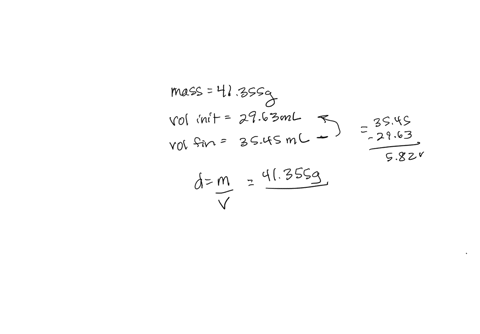 mass = 41.355g
vol init = 29.63mL
vol fin = 35.45 mL
= 35.45
- 29.63
5.82
d = m/V = 41.355g